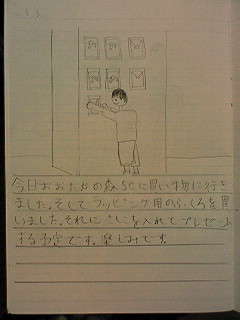 今日おおたかの森SCに買い物に行き
ました。そしてラッピング用のふくろを買
いました。それに を入れてプレゼント
する予定です。楽しみです。